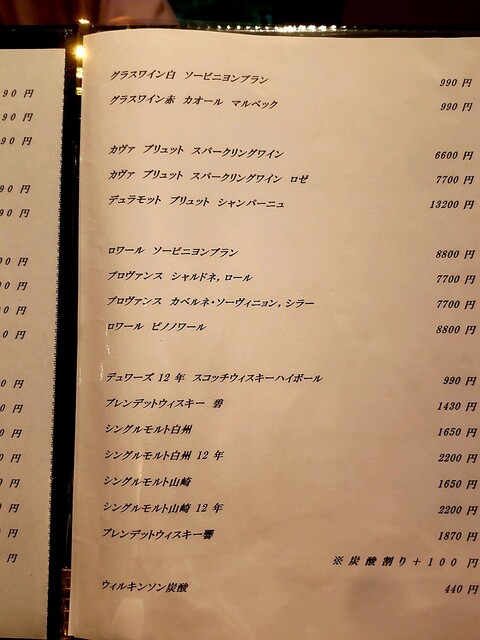 90 円
90 円
90 円
90 円
90 円
0 円
0 円
0 円
0 円
0 円
0 円
0 円
0 円
0 円
0 円
0 円
円
グラスワイン白 ソービニヨンブラン 990 円
グラスワイン赤 カオール マルベック 990 円
カヴァ ブリュット スパークリングワイン 6600 円
カヴァ ブリュット スパークリングワイン ロゼ 7700 円
デュラモット ブリュット シャンパーニュ 13200 円
ロワール ソービニヨンブラン 8800 円
プロヴァンス シャルドネ, ロール 7700 円
プロヴァンス カベルネ・ソーヴィニョン, シラー 7700 円
ロワール ピノノワール 8800 円
デュワーズ 12 年 スコッチウィスキーハイボール 990 円
ブレンデットウィスキー 碧 1430 円
シングルモルト白州 1650 円
シングルモルト白州 12 年 2200 円
シングルモルト山崎 1650 円
シングルモルト山崎 12 年 2200 円
ブレンデットウィスキー響 1870 円
※炭酸割り+100 円
ウィルキンソン炭酸 440 円